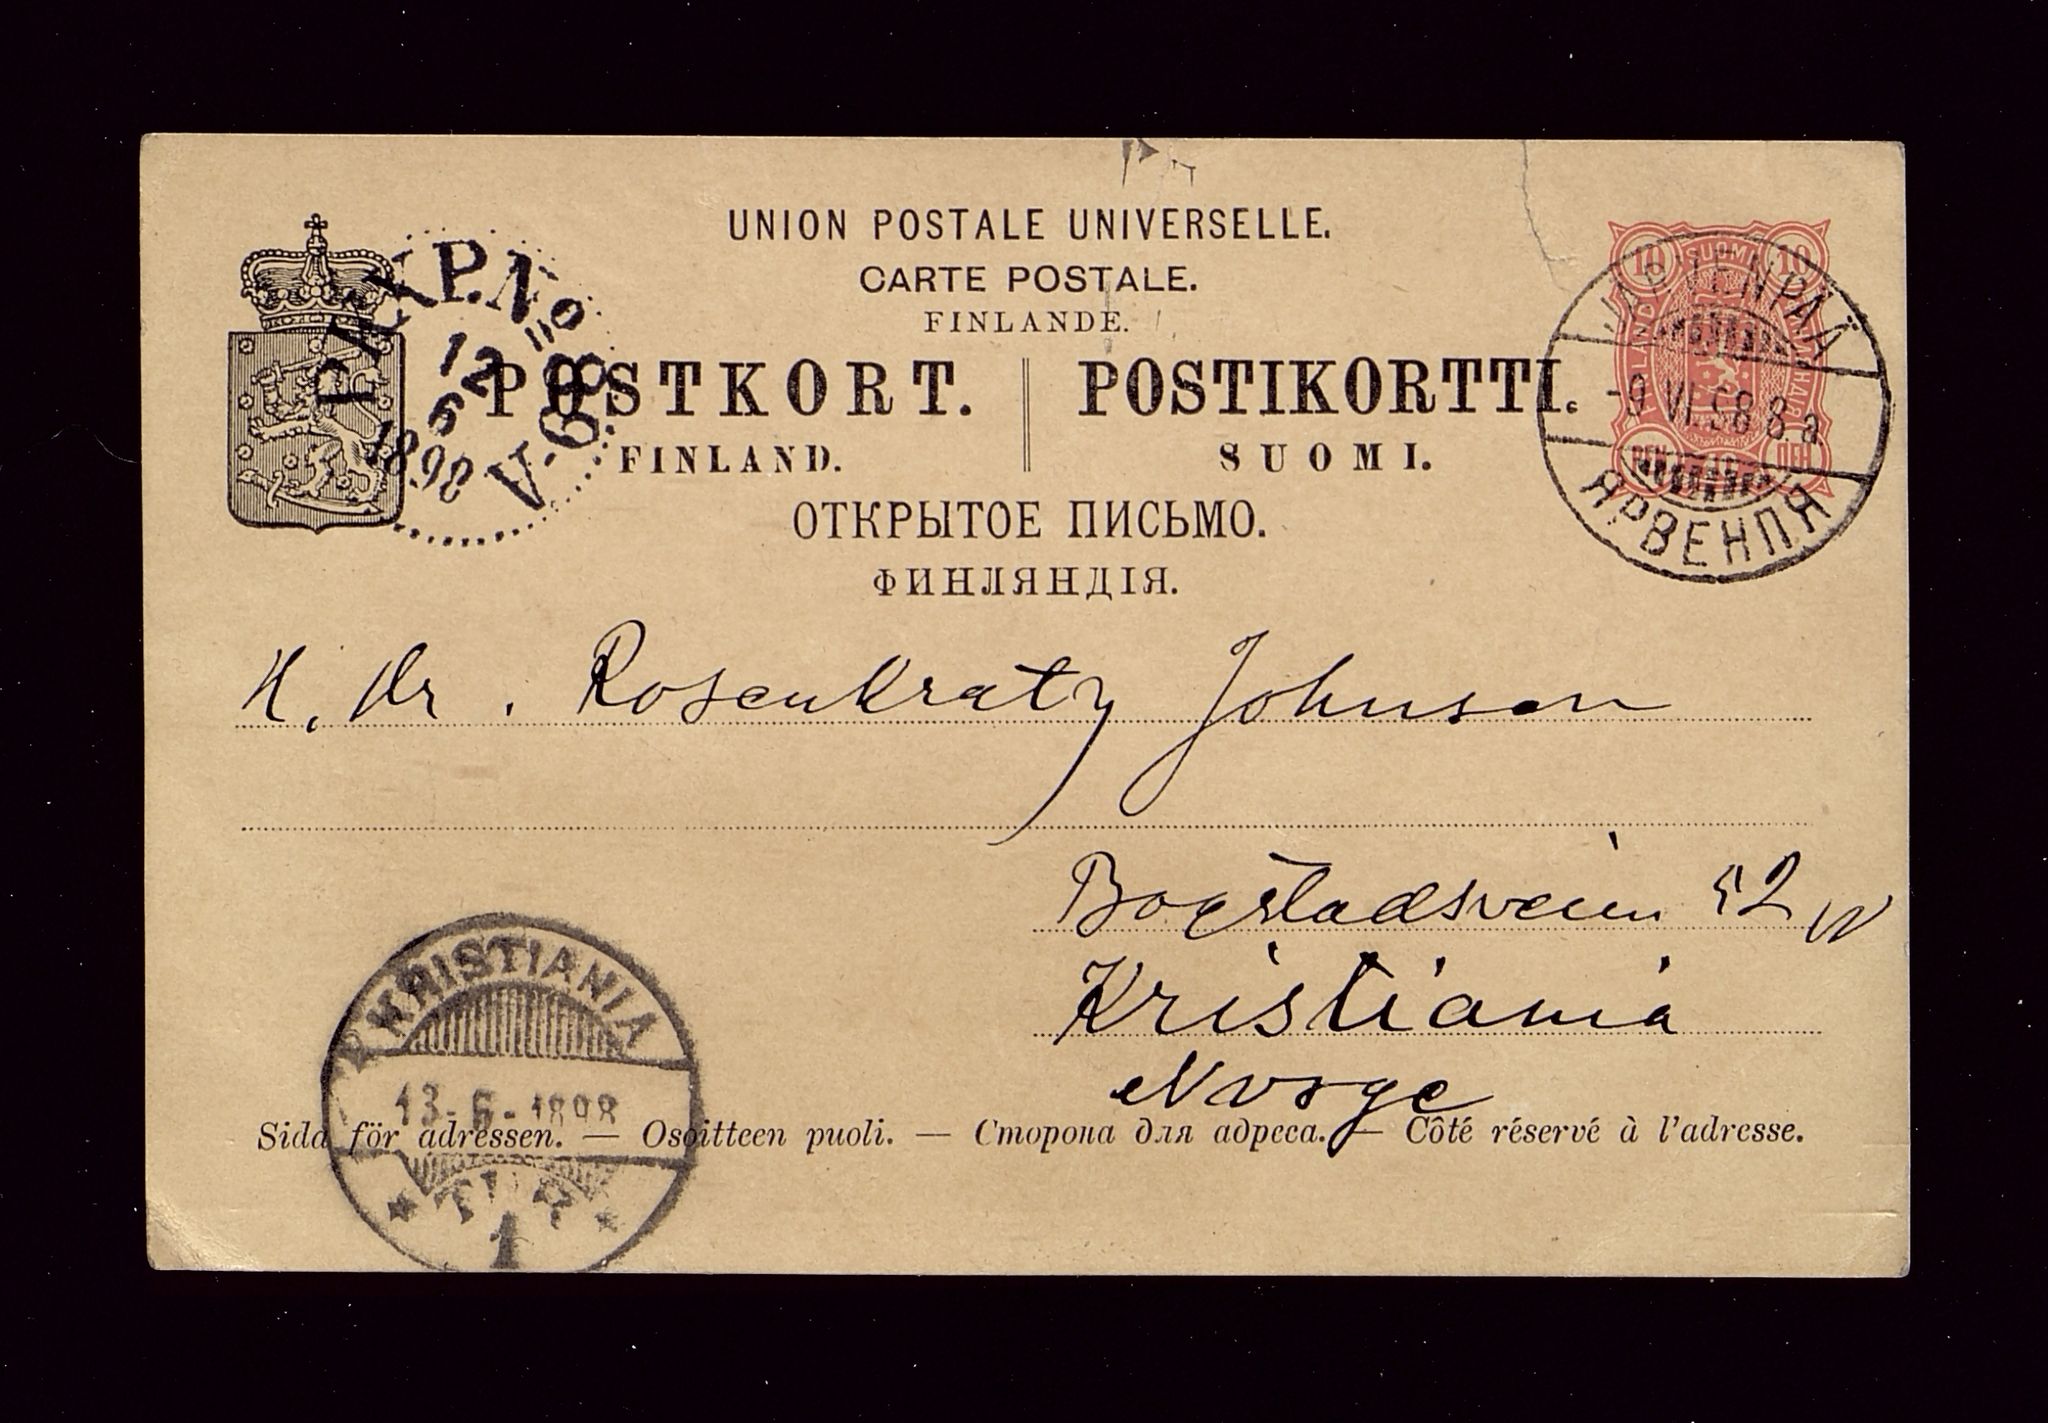 UNION POSTALE UNIVERSELLE.
CARTE POSTALE.
FINLANDE.
POSTKORT. POSTIKORTTI.
FINLAND. SUOMI.
ОТКРЫТОЕ ПИСЬМО.
ФИНЛЯНДІЯ.
PKXP. No 2
12
6
1898
10 SUOMI 10
JÄRVENPÄÄ
-9 VI. 98 8. a
ЯРВЕНПЯ
H. Dr. Rosenkratz Johnsen
Bogstadsveien 52
Kristiania
Norge
KRISTIANIA
13-6-1898
1
Sida för adressen. — Osoitteen puoli. — Сторона для адреса. — Côté réservé à l'adresse.